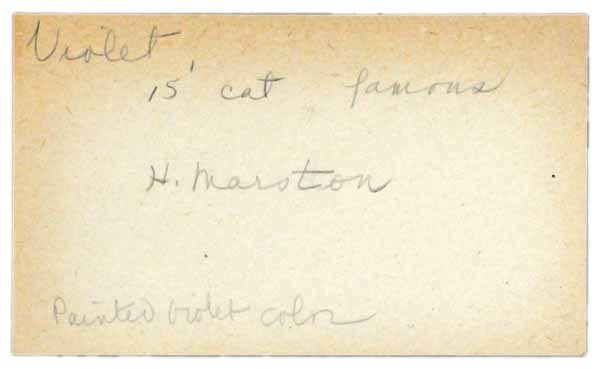 Violet
15' cat famous
H. Marston
Painted violet color